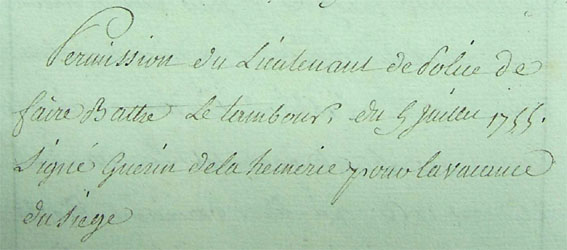 Permission du Lieutenant de Police de
faire Battre Le tambour, du 5 Juillet 1755.
Signé Guerin de la hemerie pour la vacance
du siege